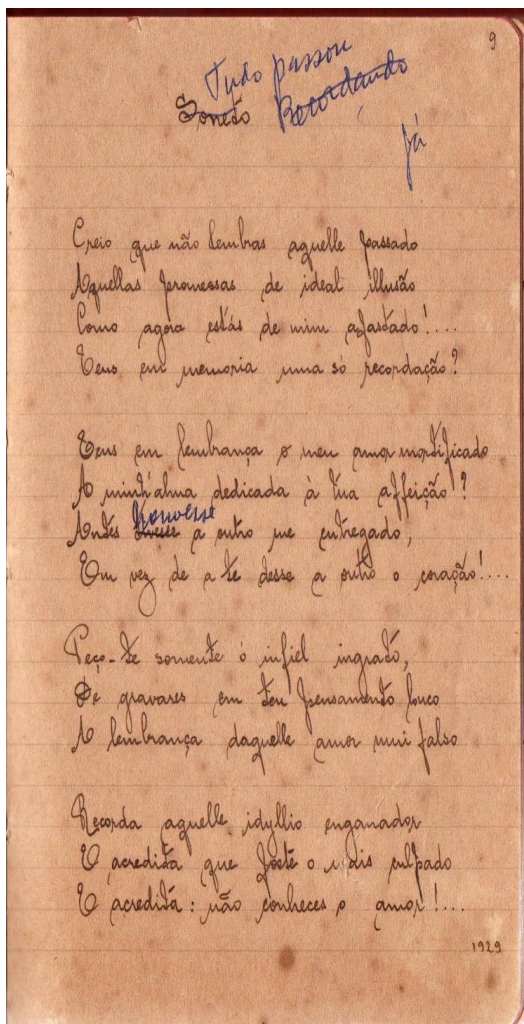 9
Tudo passou
Soneto Recordando
já
Creio que não lembras aquelle passado
Aquellas promessas de ideal illusão
Como agora estás de mim afastado!....
Tens em memoria uma só recordação?
Tens em lembrança o meu amor mortificado
A minh'alma dedicada á tua affeição?
Antes houvesse a outro me entregado,
Em vez de a te desse a outro o coração!....
Peço-te somente ó infiel ingrato,
De gravares em teu pensamento louco
A lembrança daquelle amor mui falso
Recorda aquelle idyllio enganador
E acredita que foste o culpado
E acredita: não conheces o amor!...
1929